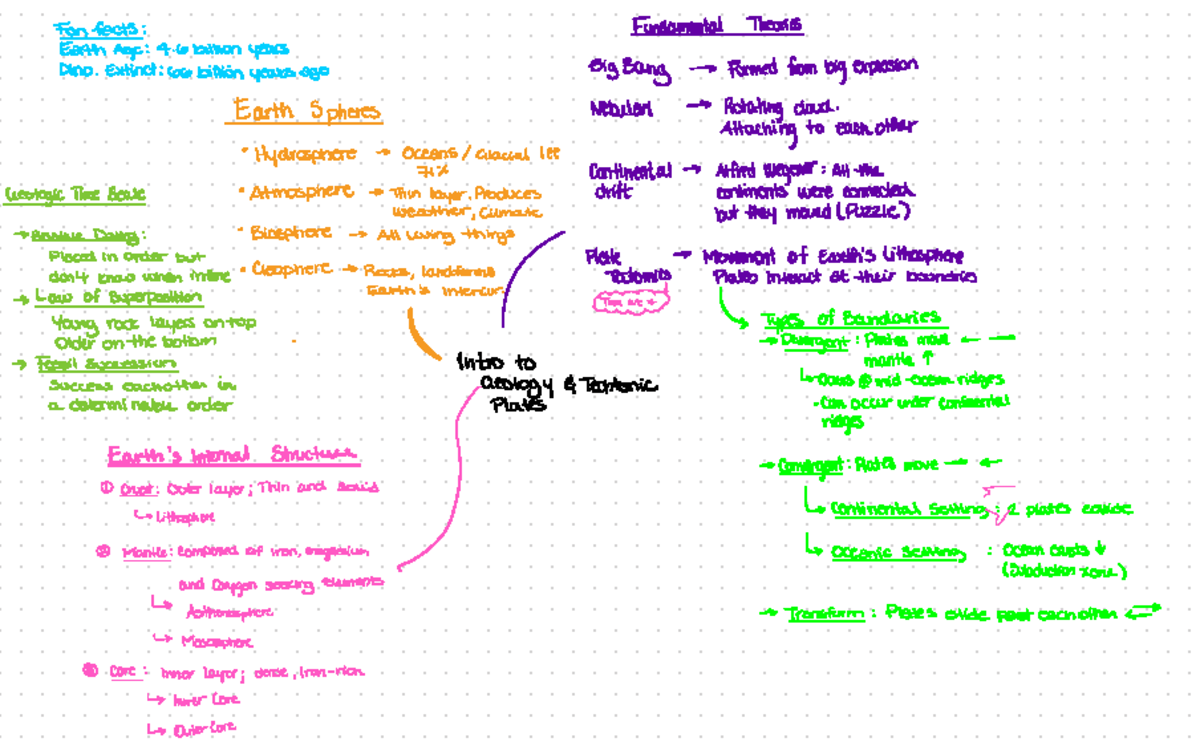 Fun facts:
Earth Age: 4.6 billion years
Dino. Extinct: 66 billion years ago
Earth Spheres
• Hydrosphere → Oceans / Glacial Ice
71%
• Atmosphere → Thin layer, Produces
weather, Climate
• Biosphere → All living things
• Geosphere → Rocks, landforms
Earth's interior
Geologic Time Scale
→ Relative Dating:
Placed in order but
don't know when in time
→ Law of Superposition
Young rock layers on top
Older on the bottom
→ Fossil Succession
Success eachother in
a determinable order
Intro to
Geology & Tectonic
Plates
Earth's Internal Structure
① Crust: Outer layer; Thin and Solid
↳ Lithosphere
② Mantle: Composed of iron, magnesium
and Oxygen seeking elements
↳ Asthenosphere
↳ Mesosphere
③ Core: Inner layer; dense, iron-rich
↳ Inner Core
↳ Outer Core
Fundamental Theories
Big Bang → Formed from big explosion
→ Rotating cloud.
Attaching to each other
Continental drift → Alfred Wegener: All the
continents were connected
but they moved (Puzzle)
Plate Tectonics → Movement of Earth's Lithosphere
Plates interact at their boundries
Types of Boundaries
→ Divergent: Plates move ← →
mantle ↑
↳ @ mid-ocean ridges
• Can occur under continental
ridges
→ Convergent: Plates move → ←
↳ Continental Setting: 2 plates collide
↳ Oceanic Setting: Ocean crusts ↓
(Subduction zone)
→ Transform: Plates slide past each other ⇄